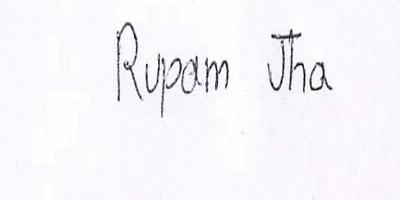 Rupam Jha